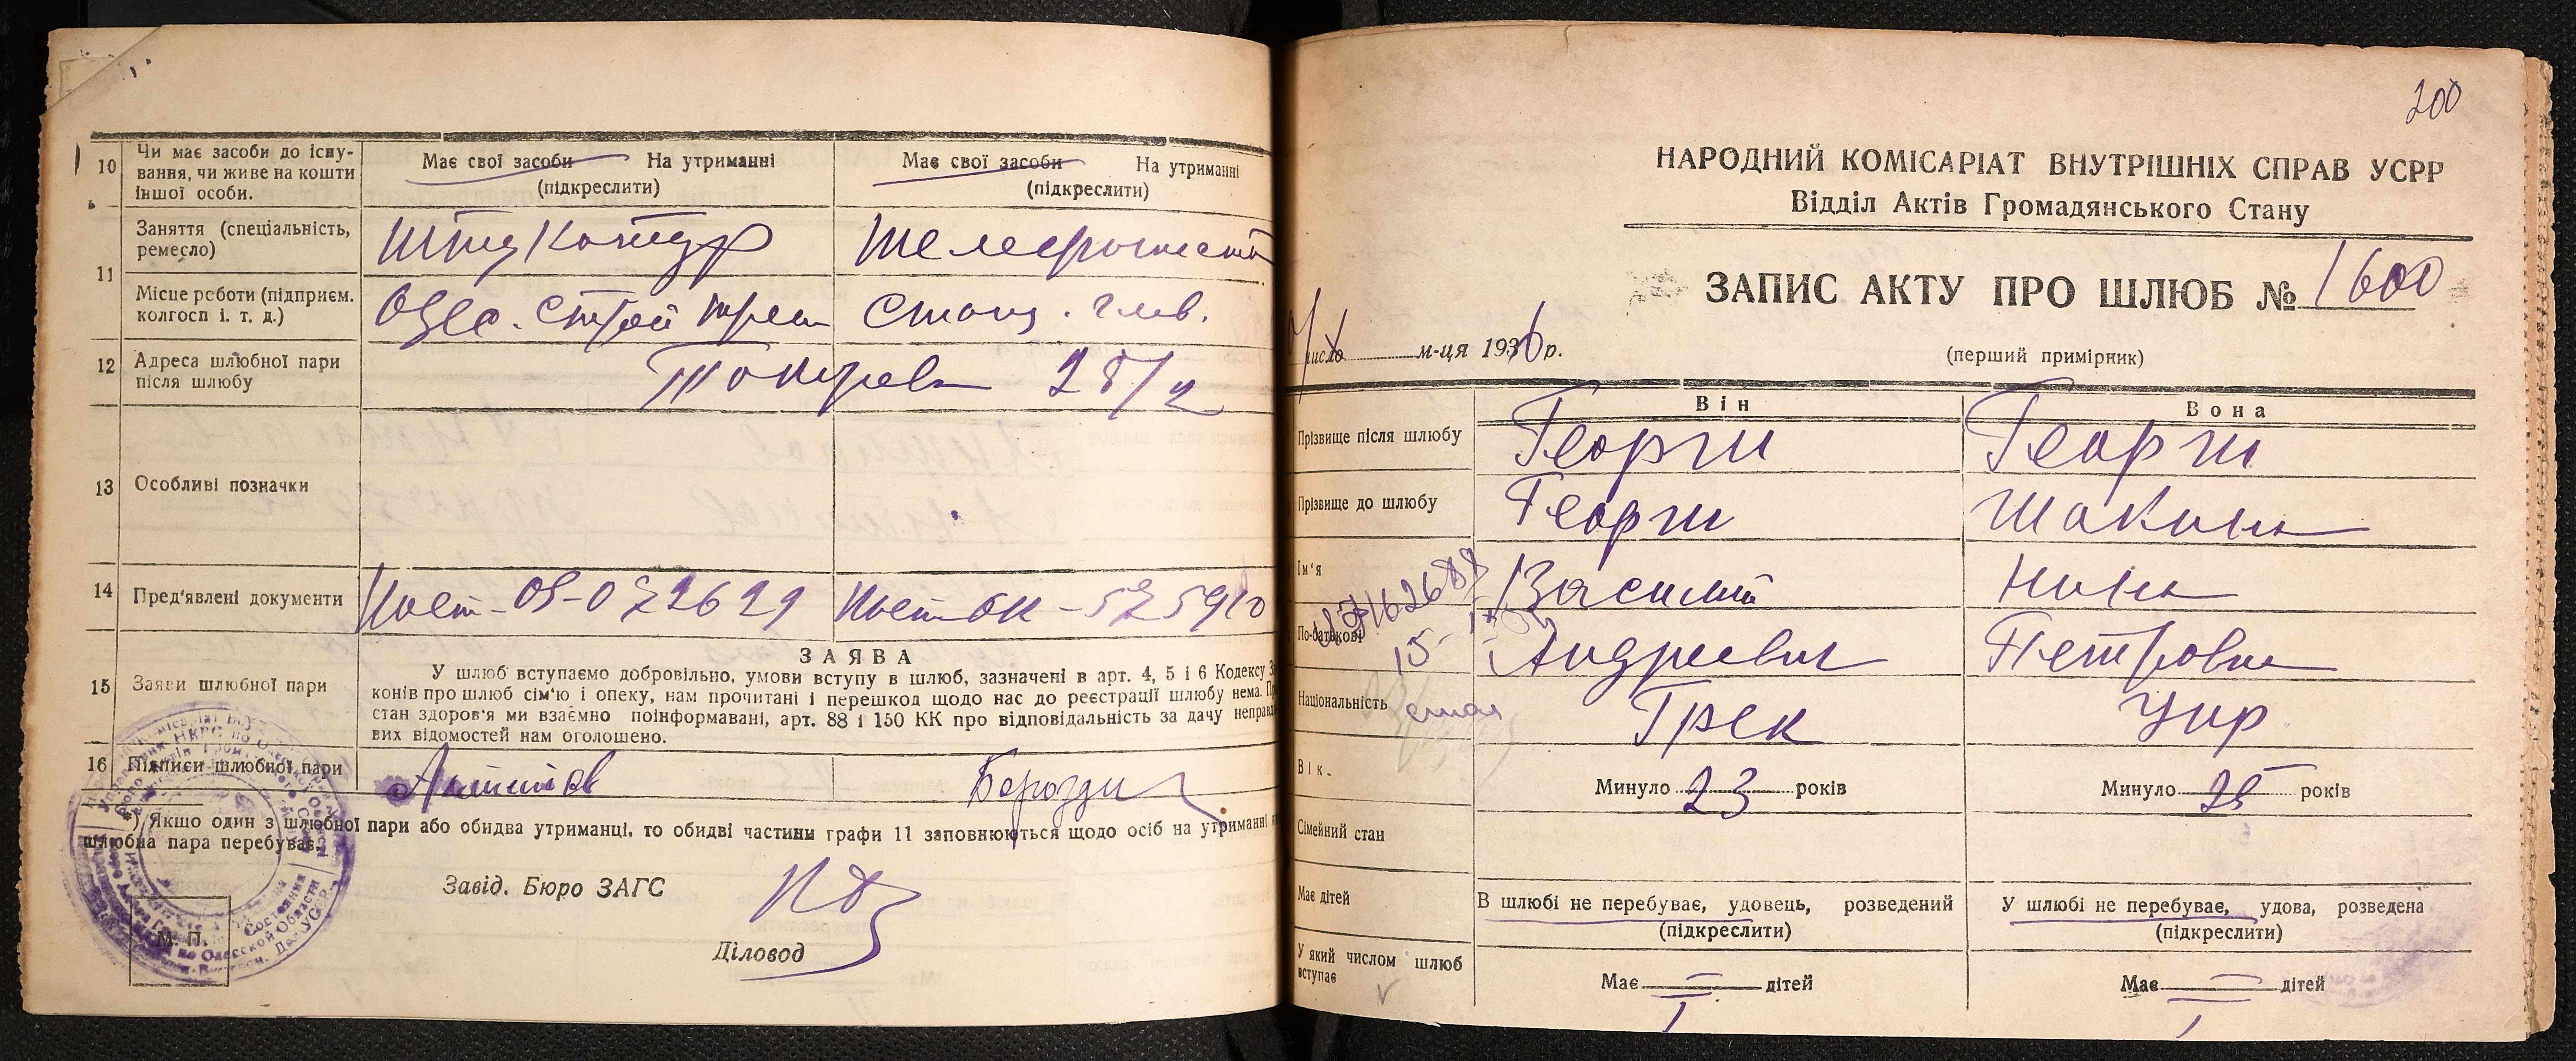 10
Чи має засоби до існу-
вання, чи живе на кошти
іншої особи.
Має свої засоби На утриманні
(підкреслити)
Має свої засоби На утриманні
(підкреслити)
11
Заняття (спеціальність,
ремесло)
Штукатур
Телефонист
Місце роботи (підприєм.
колгосп і. т. д.)
Одес. Строй трест
Станц.
12
Адреса шлюбної пари
після шлюбу
28/2
13
Особливі позначки
14
Пред'явлені документи
15
Заяви шлюбної пари
ЗАЯВА
У шлюб вступаємо добровільно, умови вступу в шлюб, зазначені в арт. 4, 5 і 6 Кодексу З
конів про шлюб сім'ю і опеку, нам прочитані і перешкод щодо нас до реєстрації шлюбу нема. П
стан здоров'я ми взаємно поінформавані, арт. 88 і 150 КК про відповідальність за дачу неправд
вих відомостей нам оголошено.
16
Підписи шлюбної пари
*) Якшо один з шлюбної пари або обидва утриманці, то обидві частини графи 11 заповнюються щодо осіб на утриманні
шлюбна пара перебуває.
Завід. Бюро ЗАГС
Діловод
М. П.
200
НАРОДНИЙ КОМІСАРІАТ ВНУТРІШНІХ СПРАВ УСРР
Відділ Актів Громадянського Стану
ЗАПИС АКТУ ПРО ШЛЮБ № 1600
число м-ця 1936 р.
(перший примірник)
Він
Вона
Прізвище після шлюбу
Георги
Георги
Прізвище до шлюбу
Георги
Шакина
Ім'я
Василий
Нина
По-батькові
Андреевич
Петровна
Національність
Грек
Укр
Вік.
Минуло 23 років
Минуло 25 років
Сімейний стан
В шлюбі не перебуває, удовець, розведений
(підкреслити)
У шлюбі не перебуває, удова, розведена
(підкреслити)
Має дітей
Має дітей
Має дітей
У який числом шлюб
вступає
I
I